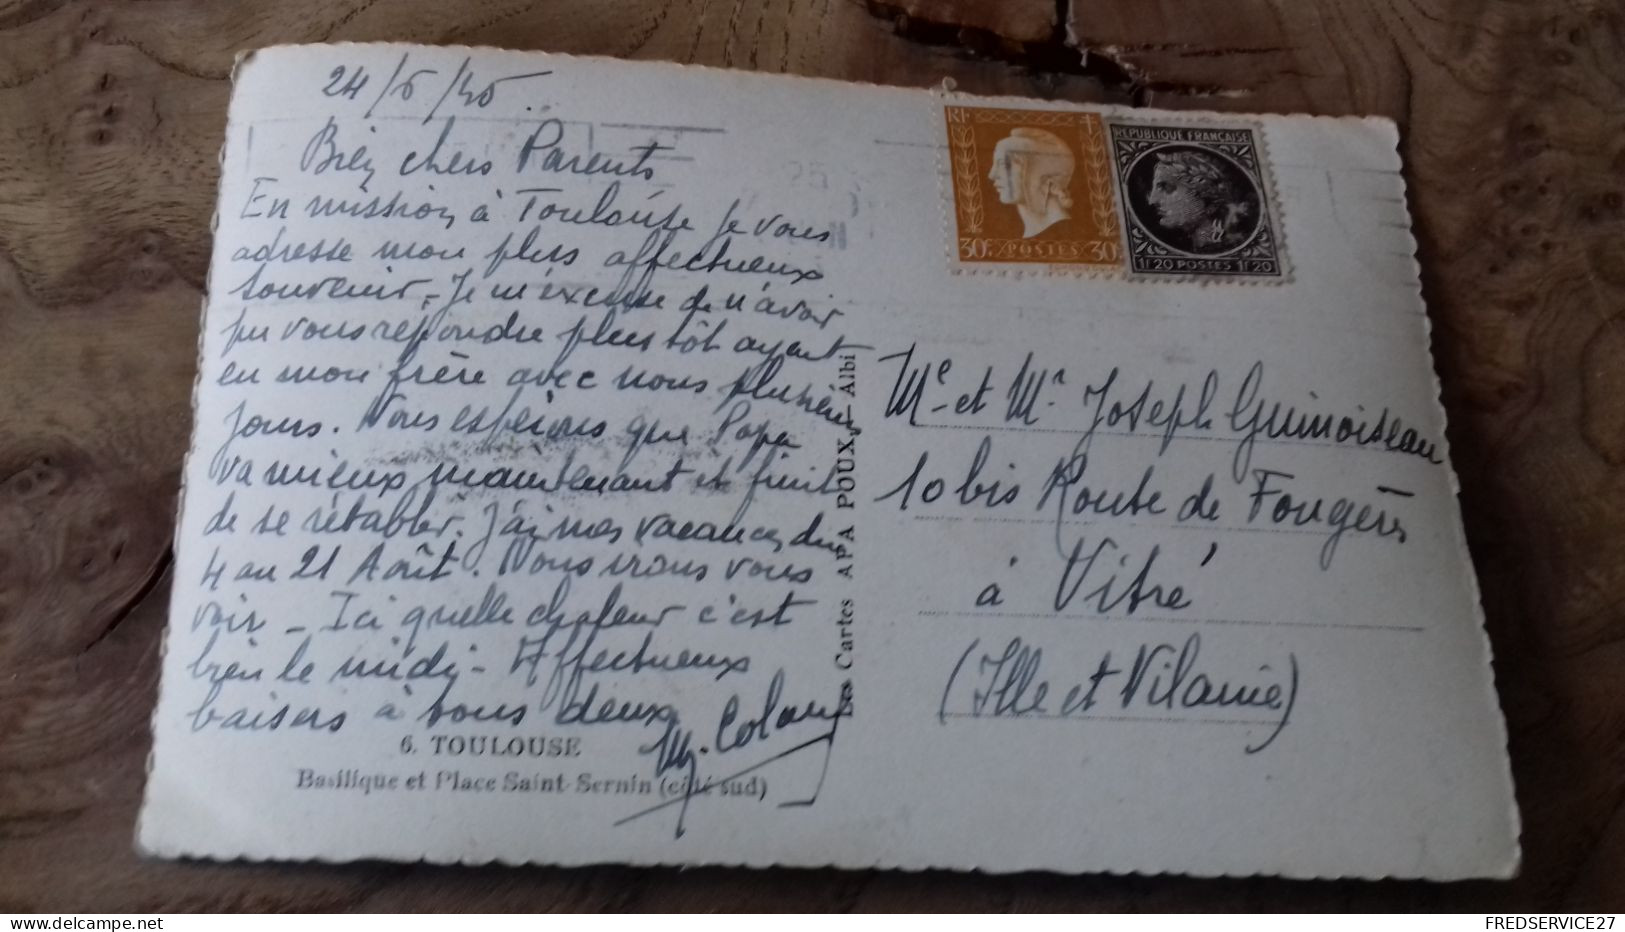 24/6/45.
Bien chers Parents
En mission à Toulouse je vous
adresse mon plus affectueux
souvenir. Je m'excuse de n'avoir
pu vous répondre plus tôt ayant
eu mon frère avec nous plusieurs
jours. Nous espérons que Papa
va mieux maintenant et finit
de se rétablir. J'ai mes vacances du
4 au 21 Août. Nous irons vous
voir - Ici quelle chaleur c'est
bien le midi - Affectueux
baisers à vous deux
6. TOULOUSE
Basilique et Place Saint-Sernin (côté sud)
Les Cartes APA POUX - Albi
RF
30c. POSTES 30c.
REPUBLIQUE FRANÇAISE
1f20 POSTES 1f20
Me et Mr Joseph Guinoiseau
10 bis Route de Fougères
à Vitré
(Ille et Vilaine)
delcampe.net
FREDSERVICE27